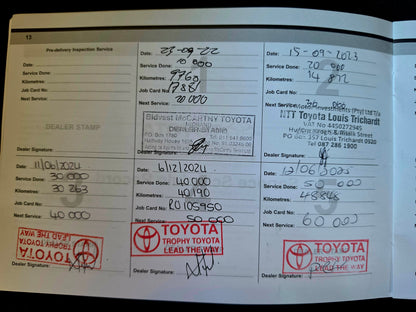 13
Pre-delivery Inspection Service
Date:
Service Done:
Kilometres:
Job Card No:
Next Service:
DEALER STAMP
Dealer Signature:
Date: 23-09-22
Service Done: 10 000
Kilometres:
Job Card No:
Next Service: 20 000
Bidvest McCARTHY TOYOTA
DEALER STAMP
Dealer Signature:
Date: 15-09-2023
Service Done: 20 000
Kilometres: 14 872
Job Card No:
Next Service: 30 000
NTT Toyota Louis Trichardt
Tel 087 286 1900
Dealer Signature:
Date: 11/06/2024
Service Done: 30 000
Kilometres: 30 263
Job Card No:
Next Service: 40 000
TOYOTA
TROPHY TOYOTA
LEAD THE WAY
Dealer Signature:
Date: 6/12/2024
Service Done: 40 000
Kilometres: 40 190
Job Card No: RO105950
Next Service: 50 000
TOYOTA
TROPHY TOYOTA
LEAD THE WAY
Dealer Signature:
Date: 12/06/2025
Service Done: 50 000
Kilometres:
Job Card No:
Next Service: 60 000
TOYOTA
TROPHY TOYOTA
LEAD THE WAY
Dealer Signature: